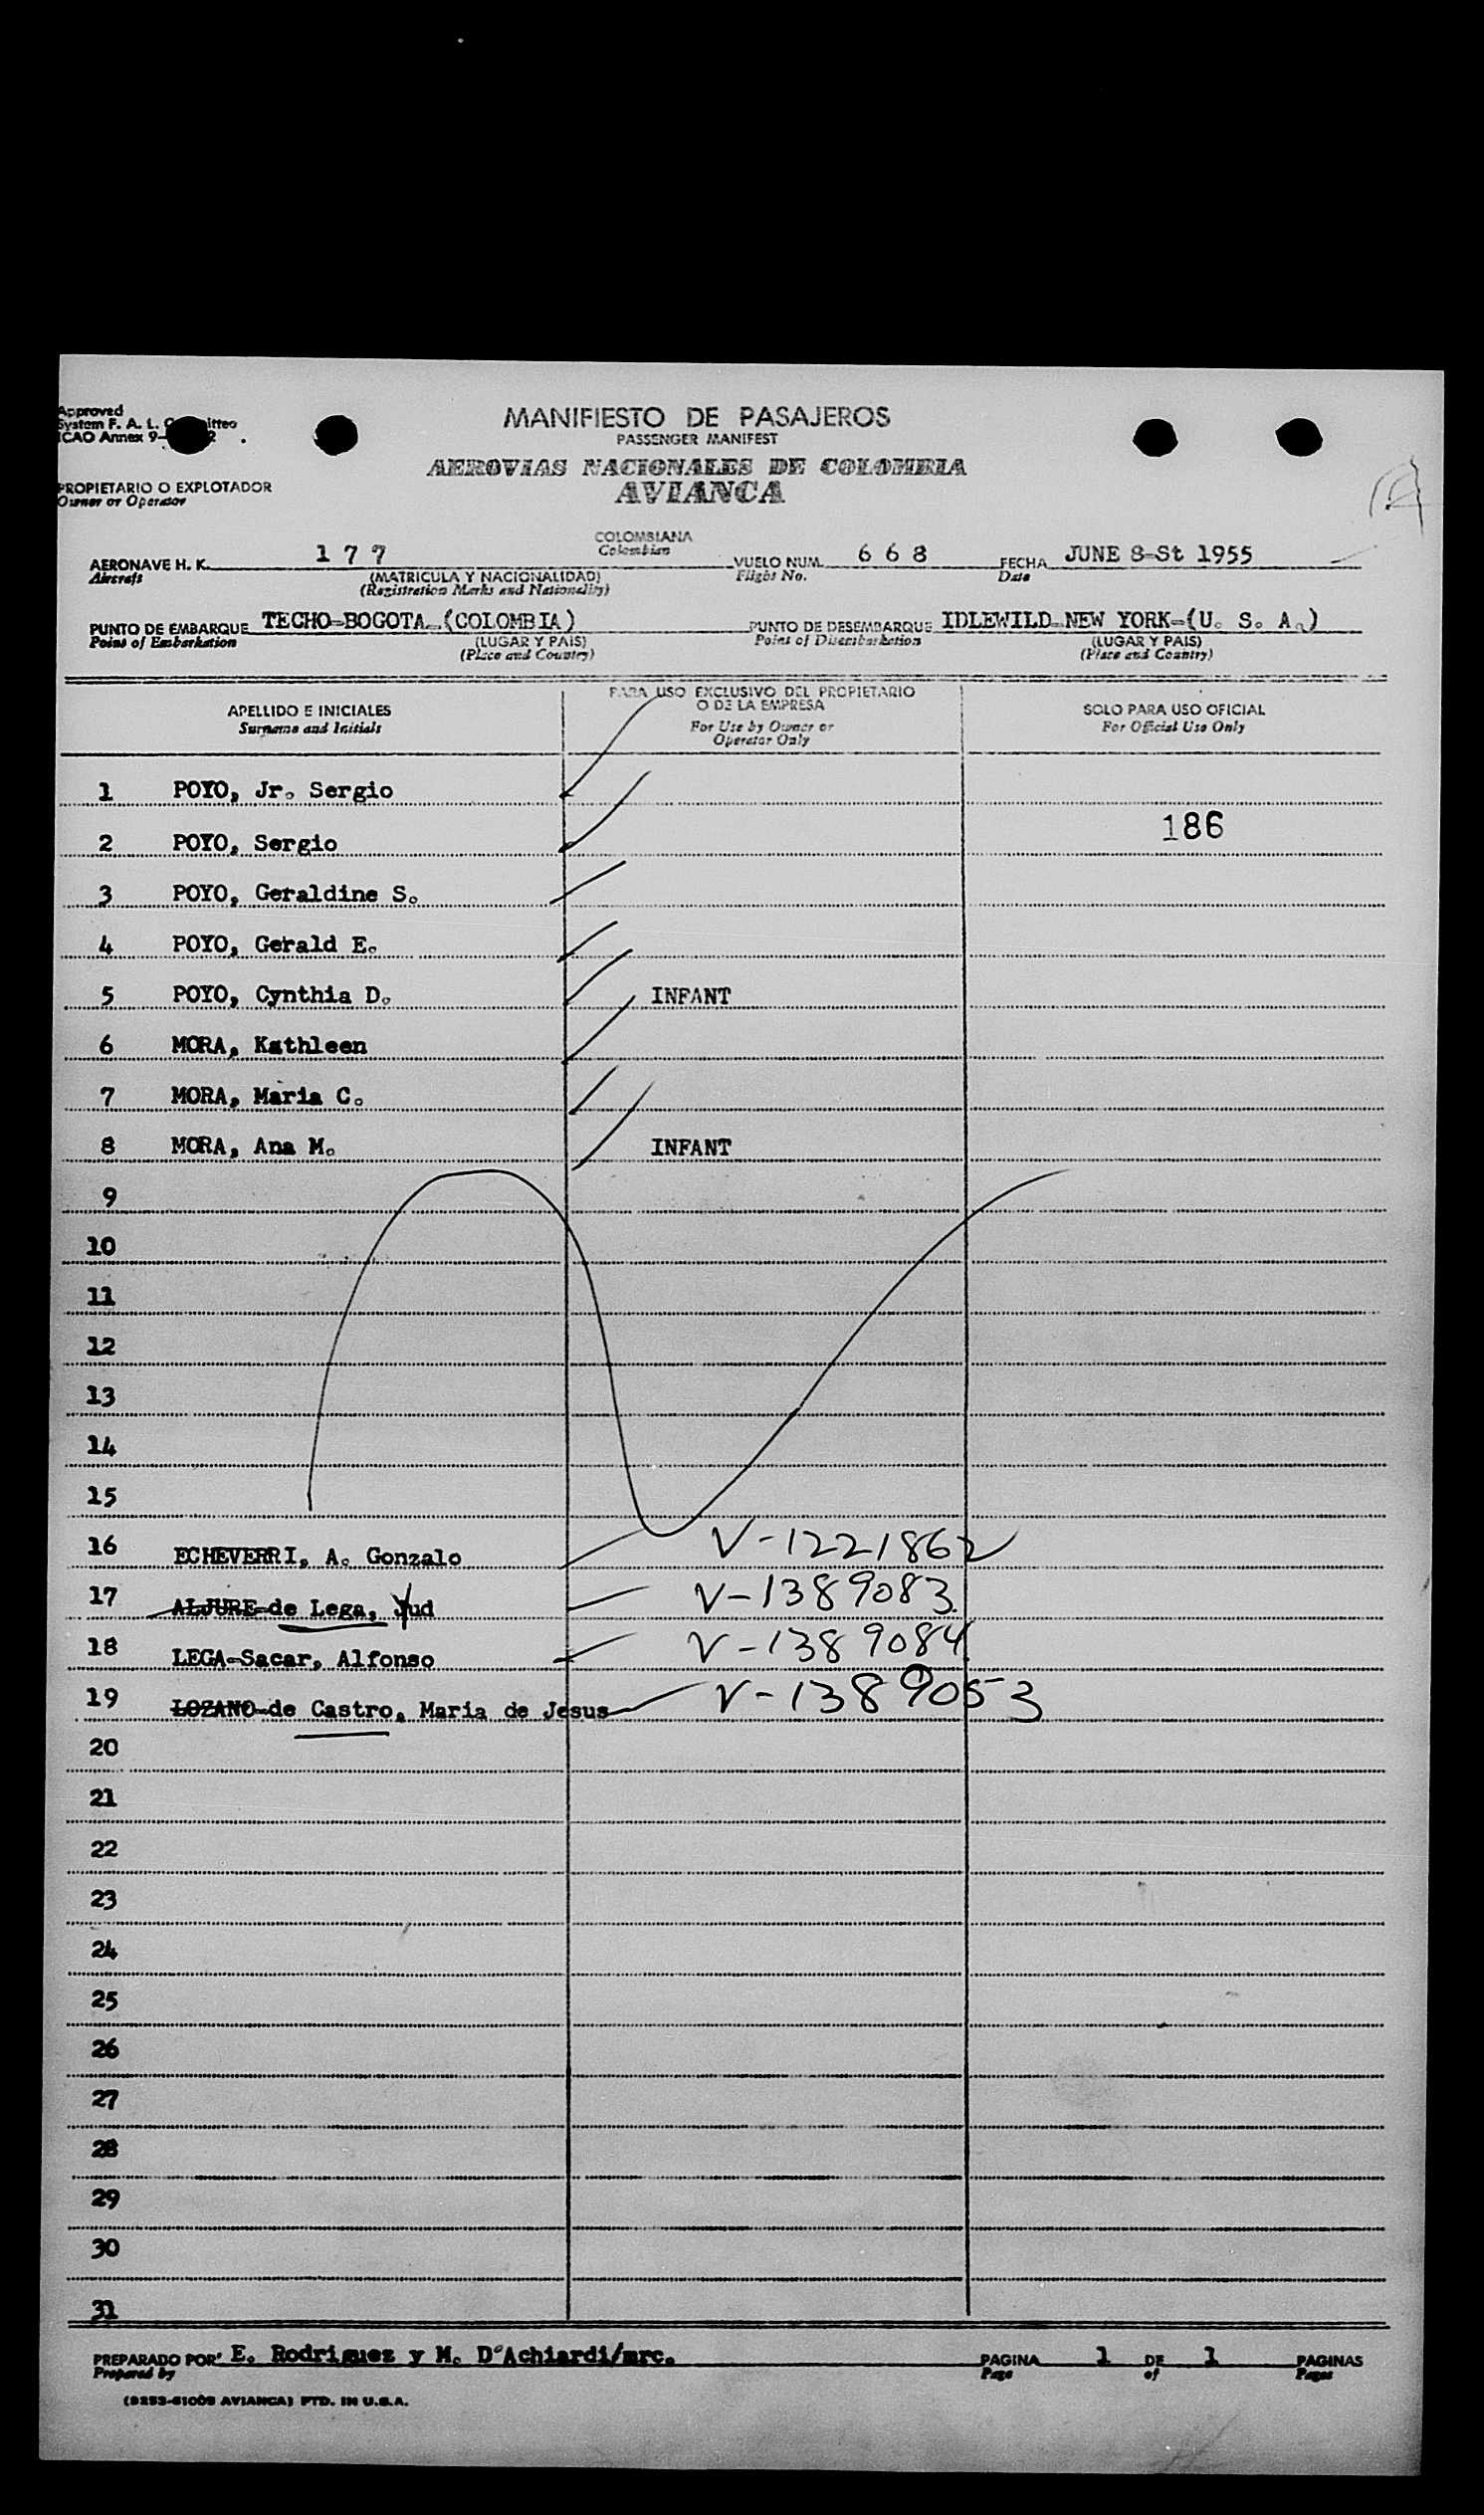 Approved
System F. A. L.
ICAO Annex 9-
MANIFIESTO DE PASAJEROS
PASSENGER MANIFEST
AEROVIAS NACIONALES DE COLOMBIA
AVIANCA
PROPIETARIO O EXPLOTADOR
Owner or Operator
COLOMBIANA
Colombian
AERONAVE H. K. 1 7 7 VUELO NUM. 6 6 8 FECHA JUNE 8-St 1955
Aircraft (MATRICULA Y NACIONALIDAD) Flight No. Date
(Registration Marks and Nationality)
PUNTO DE EMBARQUE TECHO-BOGOTA-(COLOMBIA) PUNTO DE DESEMBARQUE IDLEWILD-NEW YORK-(U. S. A.)
Point of Embarkation (LUGAR Y PAIS) Point of Disembarkation (LUGAR Y PAIS)
(Place and Country) (Place and Country)
APELLIDO E INICIALES
Surname and Initials
PARA USO EXCLUSIVO DEL PROPIETARIO
O DE LA EMPRESA
For Use by Owner or
Operator Only
SOLO PARA USO OFICIAL
For Official Use Only
1 POYO, Jr. Sergio
186
2 POYO, Sergio
3 POYO, Geraldine S.
4 POYO, Gerald E.
5 POYO, Cynthia D. INFANT
6 MORA, Kathleen
7 MORA, Maria C.
8 MORA, Ana M. INFANT
9
10
11
12
13
14
15
16 ECHEVERRI, A. Gonzalo V-1221862
17 ALJURE-de Lega, Yud V-1389083
18 LEGA-Sacar, Alfonso V-1389084
19 LOZANO-de Castro, Maria de Jesus V-1389053
20
21
22
23
24
25
26
27
28
29
30
31
PREPARADO POR: E. Rodriguez y M. D'Achiardi/mrc. PAGINA 1 DE 1 PAGINAS
Prepared by Page of Pages
(9253-61005 AVIANCA) PTD. IN U.S.A.